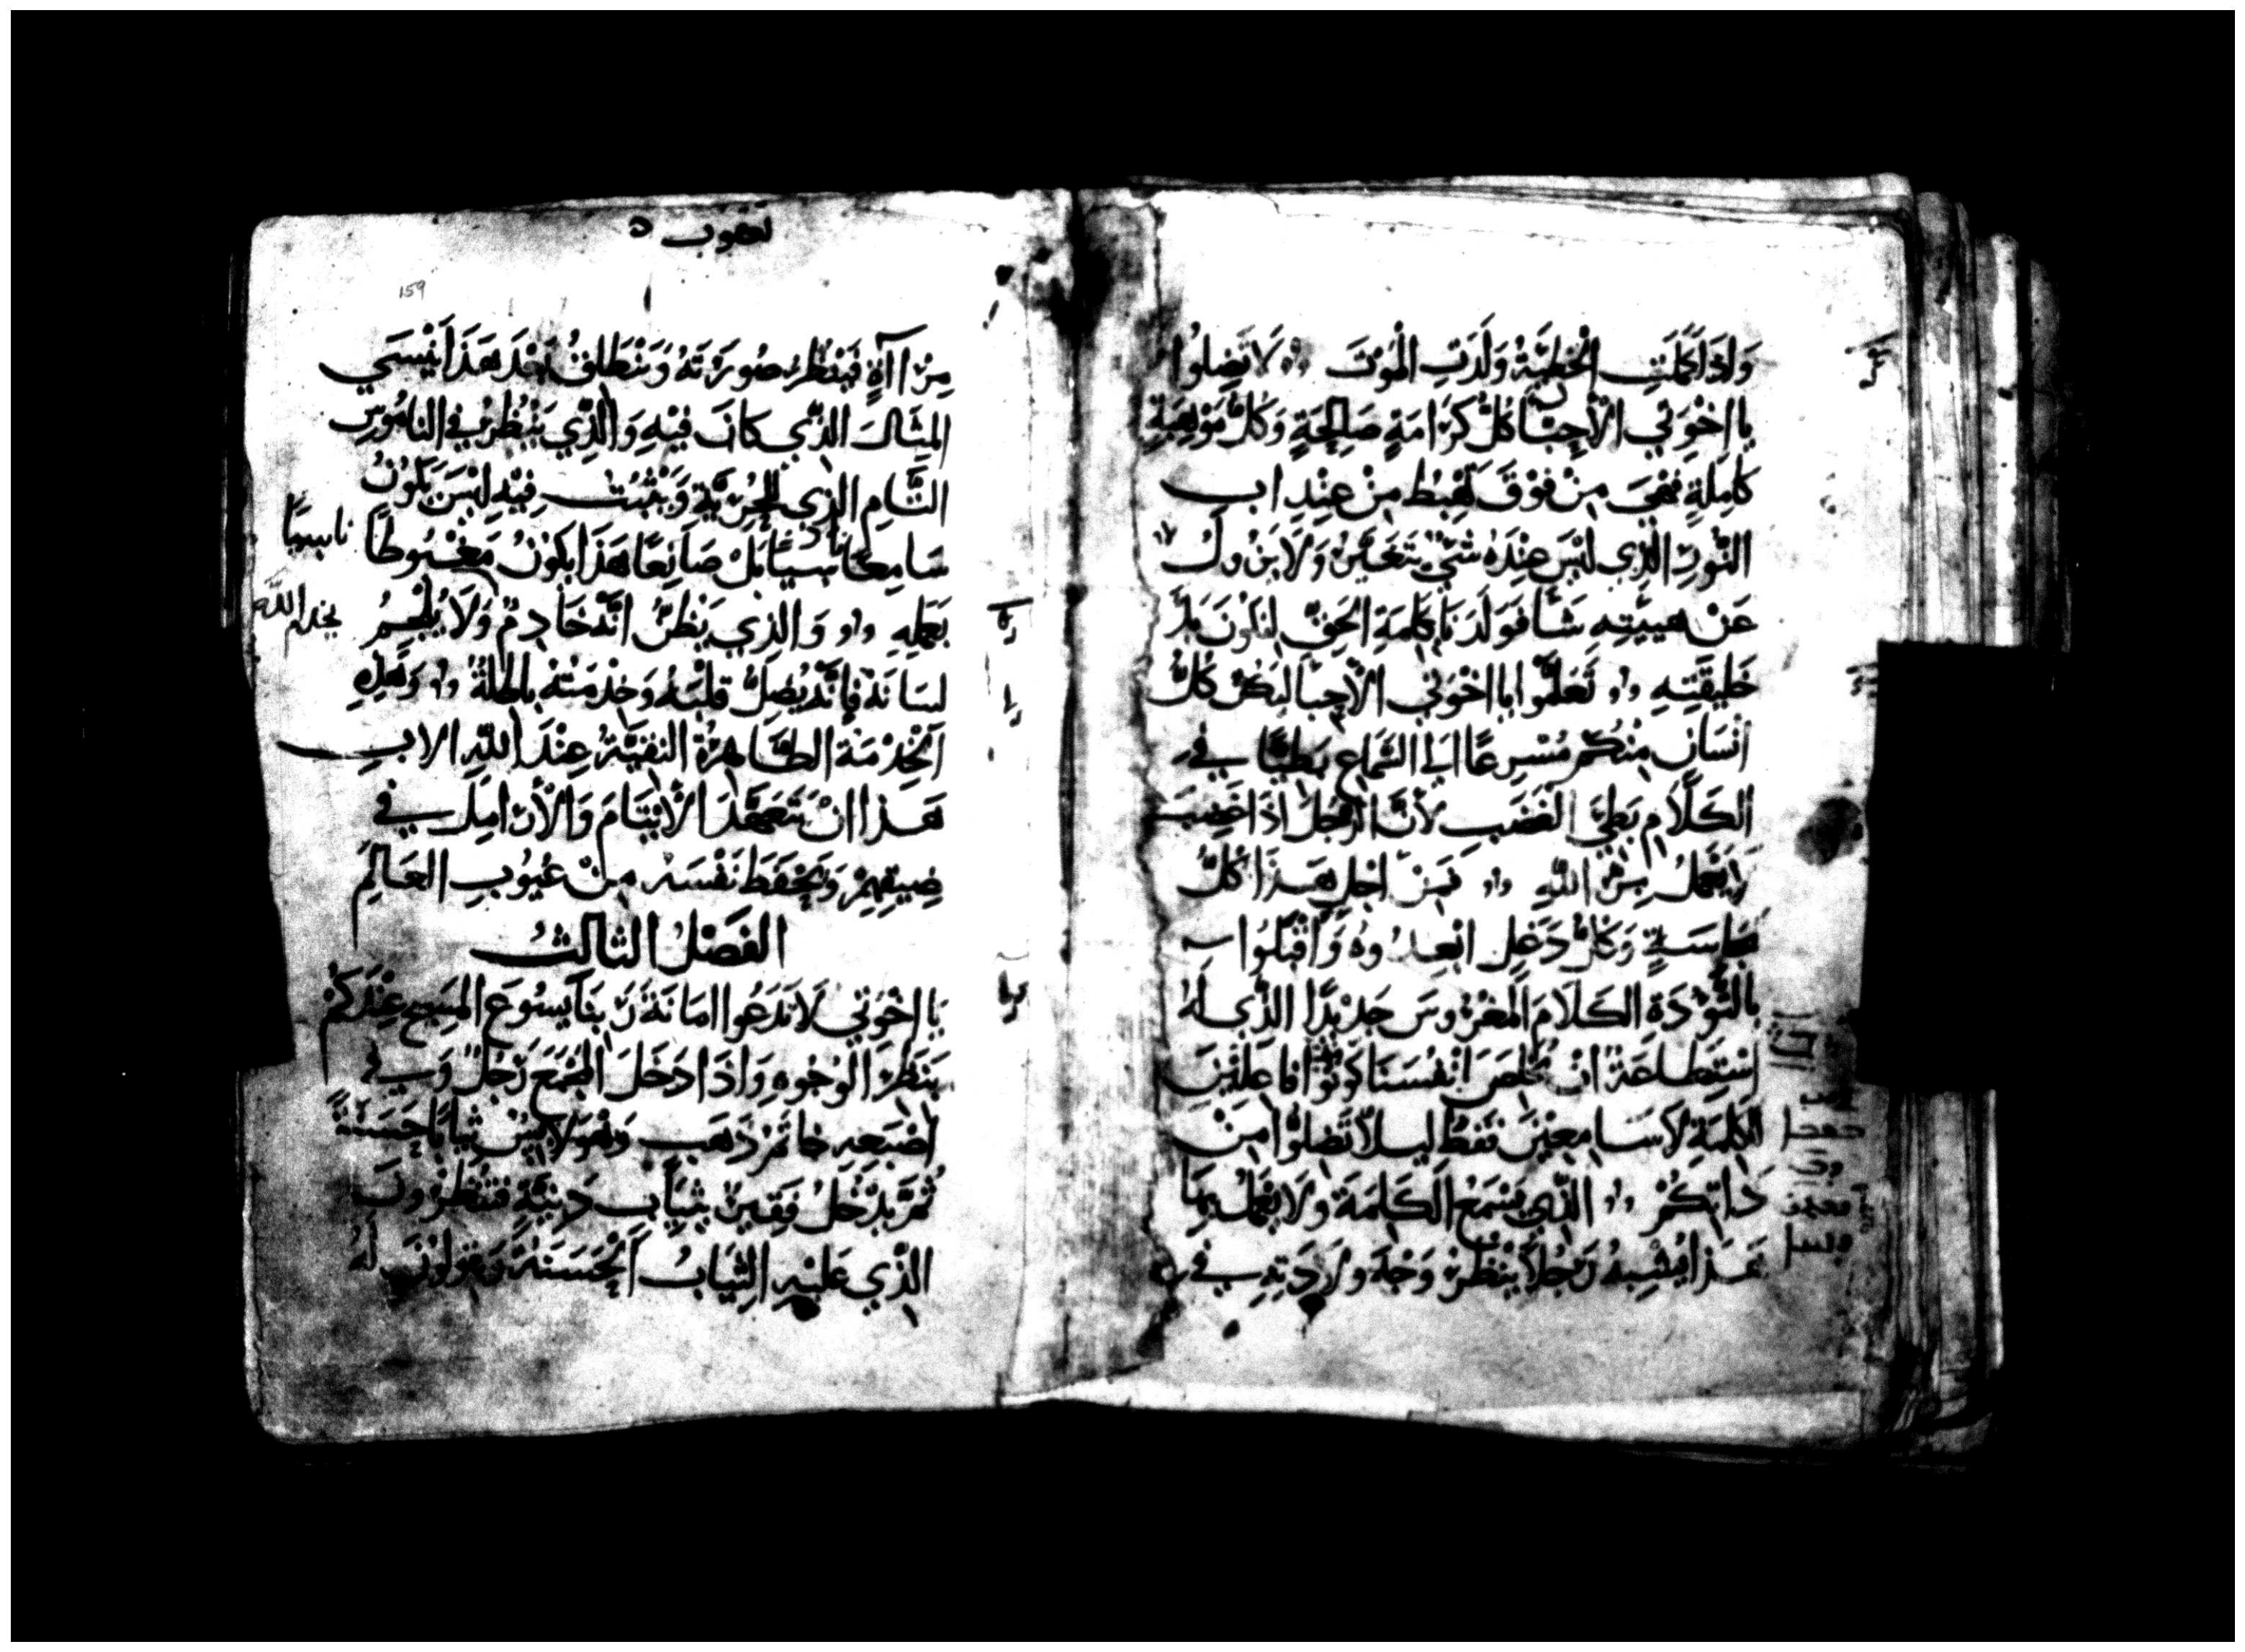 وَاذَا كَمُلَتِ الْخَطِيَّةُ وَلَدَتِ الْمَوْتَ لَا تَضِلوُا
يا اخْوَتي الْأَحِبّا كُلُّ كَرَامَةٍ صَالِحَةٍ وَكُلُّ مَوْهِبَةٍ
كامِلَةٍ فهْيَ مِنْ فوْقَ تَهْبِطُ مِنْ عِنْدِ اب
النُّورِ الذِي ليْسَ عِنْدَهُ شَيْ يتغَيَّرُ وَلَا يَزُولُ
عَنْ هييَّتِهِ شَا فوَلَدَنا بكلِمَةِ الحَقِّ لِنكوْنَ بَدْ
خَليقَتِهِ تَعَلمَّوا يا اخْوَتي الْأَحِبّا ليَكُنْ كُلُّ
انْسَانٍ مِنْكُمْ مُسْرِعًا الَى السَّمَاعِ بَطِيًّا في
الكَلَامِ بَطِيَّ الغَضَبِ لأَنَّ الرَّجُلَ اذَا غَضِبَ
لَا يَعْمَلُ بِرَّ اللهِ فَمِنْ اجْلِ هَذَا كُلُّ
نجاسَةٍ وَكُلُّ دَغَلٍ ابْعِدُوهُ وَاقْبَلُوا
بالتُّؤَدَةِ الكَلَامَ المَغْرُوسَ جَدِيْدًا الذِّي لَهُ
اسْتِطَاعَةُ انْ تُخَلصَ انْفُسَنَا كونُوْا فاعِليْنَ
الكلِمَةِ لَا سَامِعِيْنَ فقطْ ليلاَّ تضِلوُّا مِنْ
ذاتِكُمْ الذِّي يَسْمَعُ الكَلِمَةَ وَلَا يَعْمَلُ بِهَا
هَذا يُشْبِهُ رَجُلاً يَنْظُرُ وَجْهَ ولادَتِهِ في
يعقوب
159
مِرْاآةٍ فَيَنْظُرُ صُورَتَهُ وَيَنْطَلِقُ بَعْدَ هَذَا يَنْسَي
المِثَالَ الذِّي كانَ فيْهِ وَالذِّي يَنْظُرُ في النامُوسِ
التَّامِ الذِي للحُرِّيَّةِ وَيَثْبُتُ فِيْهِ ليْسَ يَكُونُ
سَامِعًا ناسِيًا بَلْ صَانِعًا هَذَا يكوْنُ مَغْبُوطًا
ناسيًا
بعَمَلِهِ وَالذِي يَظُنُّ انَّهُ خَادِمٌ وَلَا يُلْجِمُ
يخدم الله
لسَانَهُ فإنَّهُ يُضِلُّ قلبَهُ وَخِدْمَتُهُ باطِلَةٌ وَهَذِهِ
الْخِدْمَةُ الطَّاهِرَةُ النقيَّةُ عِنْدَ اللهِ الاب
هَذَا انْ تتَعَهَّدَ الأَيْتَامَ وَالْأَرَامِلَ في
ضِيقِهِمْ وَتَحْفَظَ نَفْسَهُ مِنْ عُيُوبِ العَالَمِ
الفَصْلُ الثالثُ
يا اخْوَتي لَا تَدَعُوا امَانَةَ رَبنَا يَسُوعَ المَسِيحِ عِنْدَكُمْ
بنَظَرِ الوُجُوهِ وَاذَا دَخَلَ المَجْمَعَ رَجُلٌ وَفي
اصْبَعِهِ خاتمُ ذَهَبٍ وَهُوَ لَابِسٌ ثيابًا حَسَنَةً
ثُمَّ يَدْخُلُ فقِيرٌ بثِيَابٍ دَنِيَّةٍ فتنظرُونَ
الذِّي عَليْهِ الثِّيَابُ الْحَسَنَةُ وَتقولُوْنَ لهُ